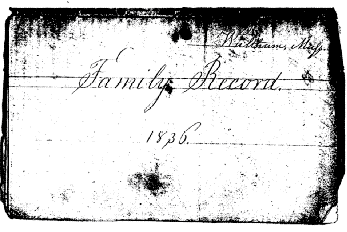 Waltham, Mass.
Family Record.
1836.